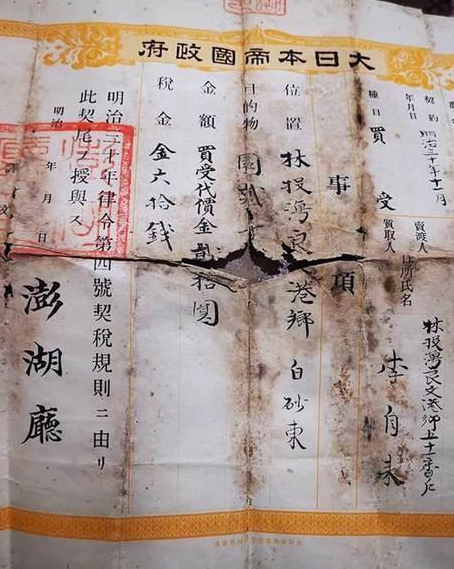 大日本帝國政府
契約年月日 明治三十年十一月
賣渡人
質取人 住所氏名
林投灣良文港鄉五十二番戶
李自
種目 買受
事項
位置 林投灣良 港鄉 白砂東
目的物 園
金額 買受代價金貳拾圓
稅金 金六拾錢
明治三十年律令第四號契稅規則ニ由リ
此契尾ヲ授與ス
明治 年 月 日
澎湖廳